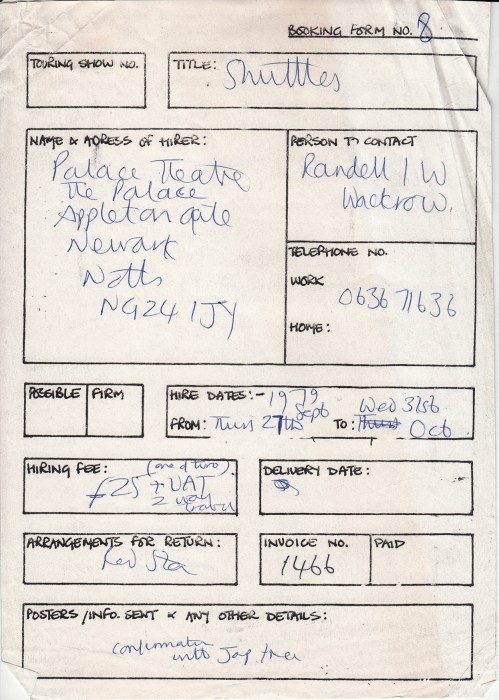 BOOKING FORM NO. 8
TOURING SHOW NO.
TITLE: Shuttles
NAME & ADRESS OF HIRER:
Palace Theatre
The Palace
Appleton gate
Newark
Notts
NG24 1JY
PERSON TO CONTACT
Randell / W
Wackrow.
TELEPHONE NO.
WORK
0636 71636
HOME:
POSSIBLE FIRM
HIRE DATES:- 1979
FROM: Thurs 27th Sept TO: Wed 31st Oct
HIRING FEE: (one of two)
£25 + VAT
2 way
travel
DELIVERY DATE:
ARRANGEMENTS FOR RETURN:
Red Star
INVOICE NO.
1466
PAID
POSTERS/INFO. SENT & ANY OTHER DETAILS:
confirmation
with